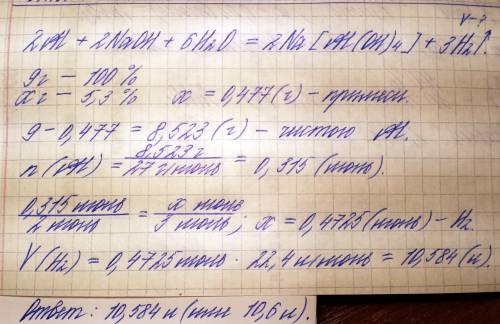 V-?
2Al + 2NaOH + 6H₂O = 2Na[Al(OH)₄] + 3H₂↑.
9г – 100 %
xг – 5,3 % x = 0,477 (г) – примеси.
9 – 0,477 = 8,523 (г) – чистого Al.
n(Al) = 8,523 г / 27 г/моль = 0,315 (моль).
0,315 моль / 2 моль = x моль / 3 моль ; x = 0,4725 (моль) – H₂.
V(H₂) = 0,4725 моль · 22,4 л/моль = 10,584 (л).
Ответ: 10,584 л (или 10,6 л).